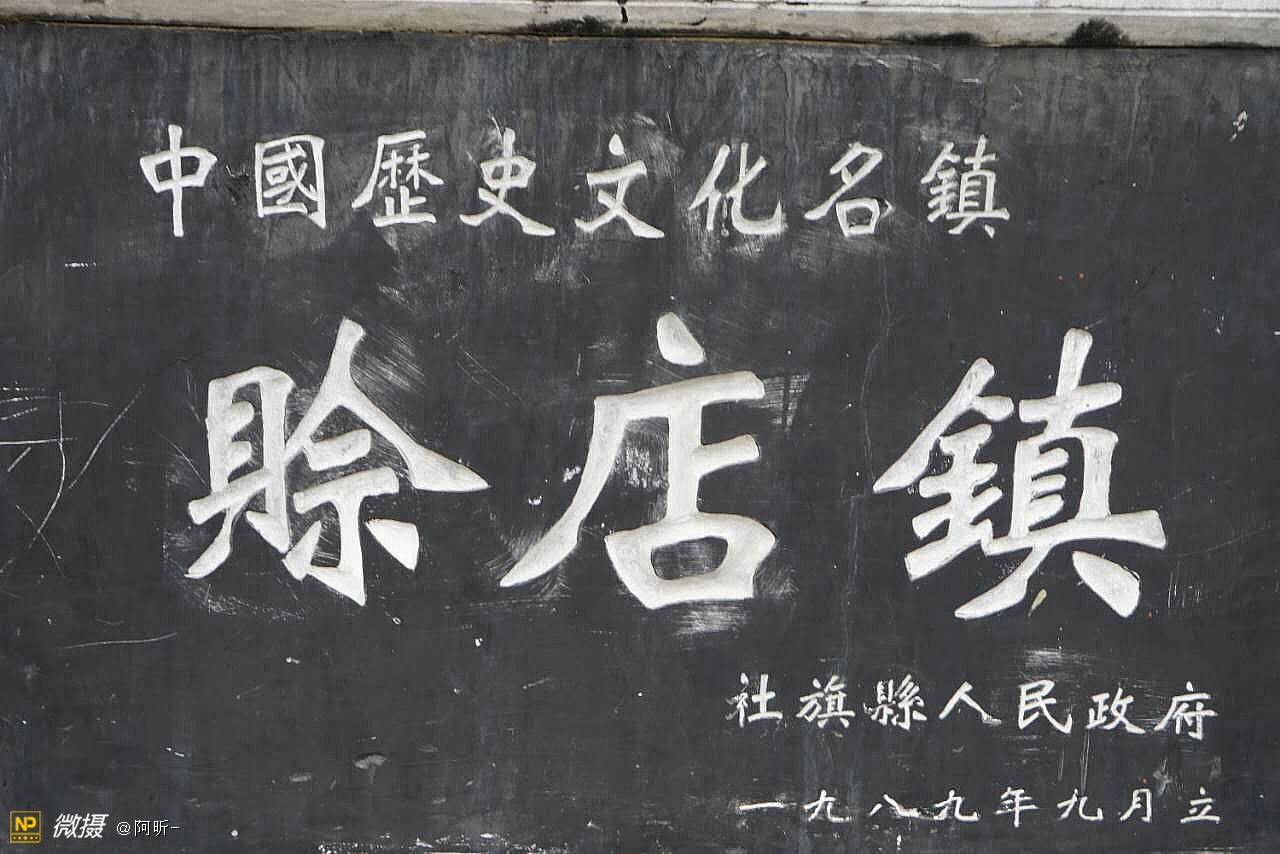 中國歷史文化名鎮
賒店鎮
社旗縣人民政府
一九八九年九月立
NP 微摄 @阿昕-